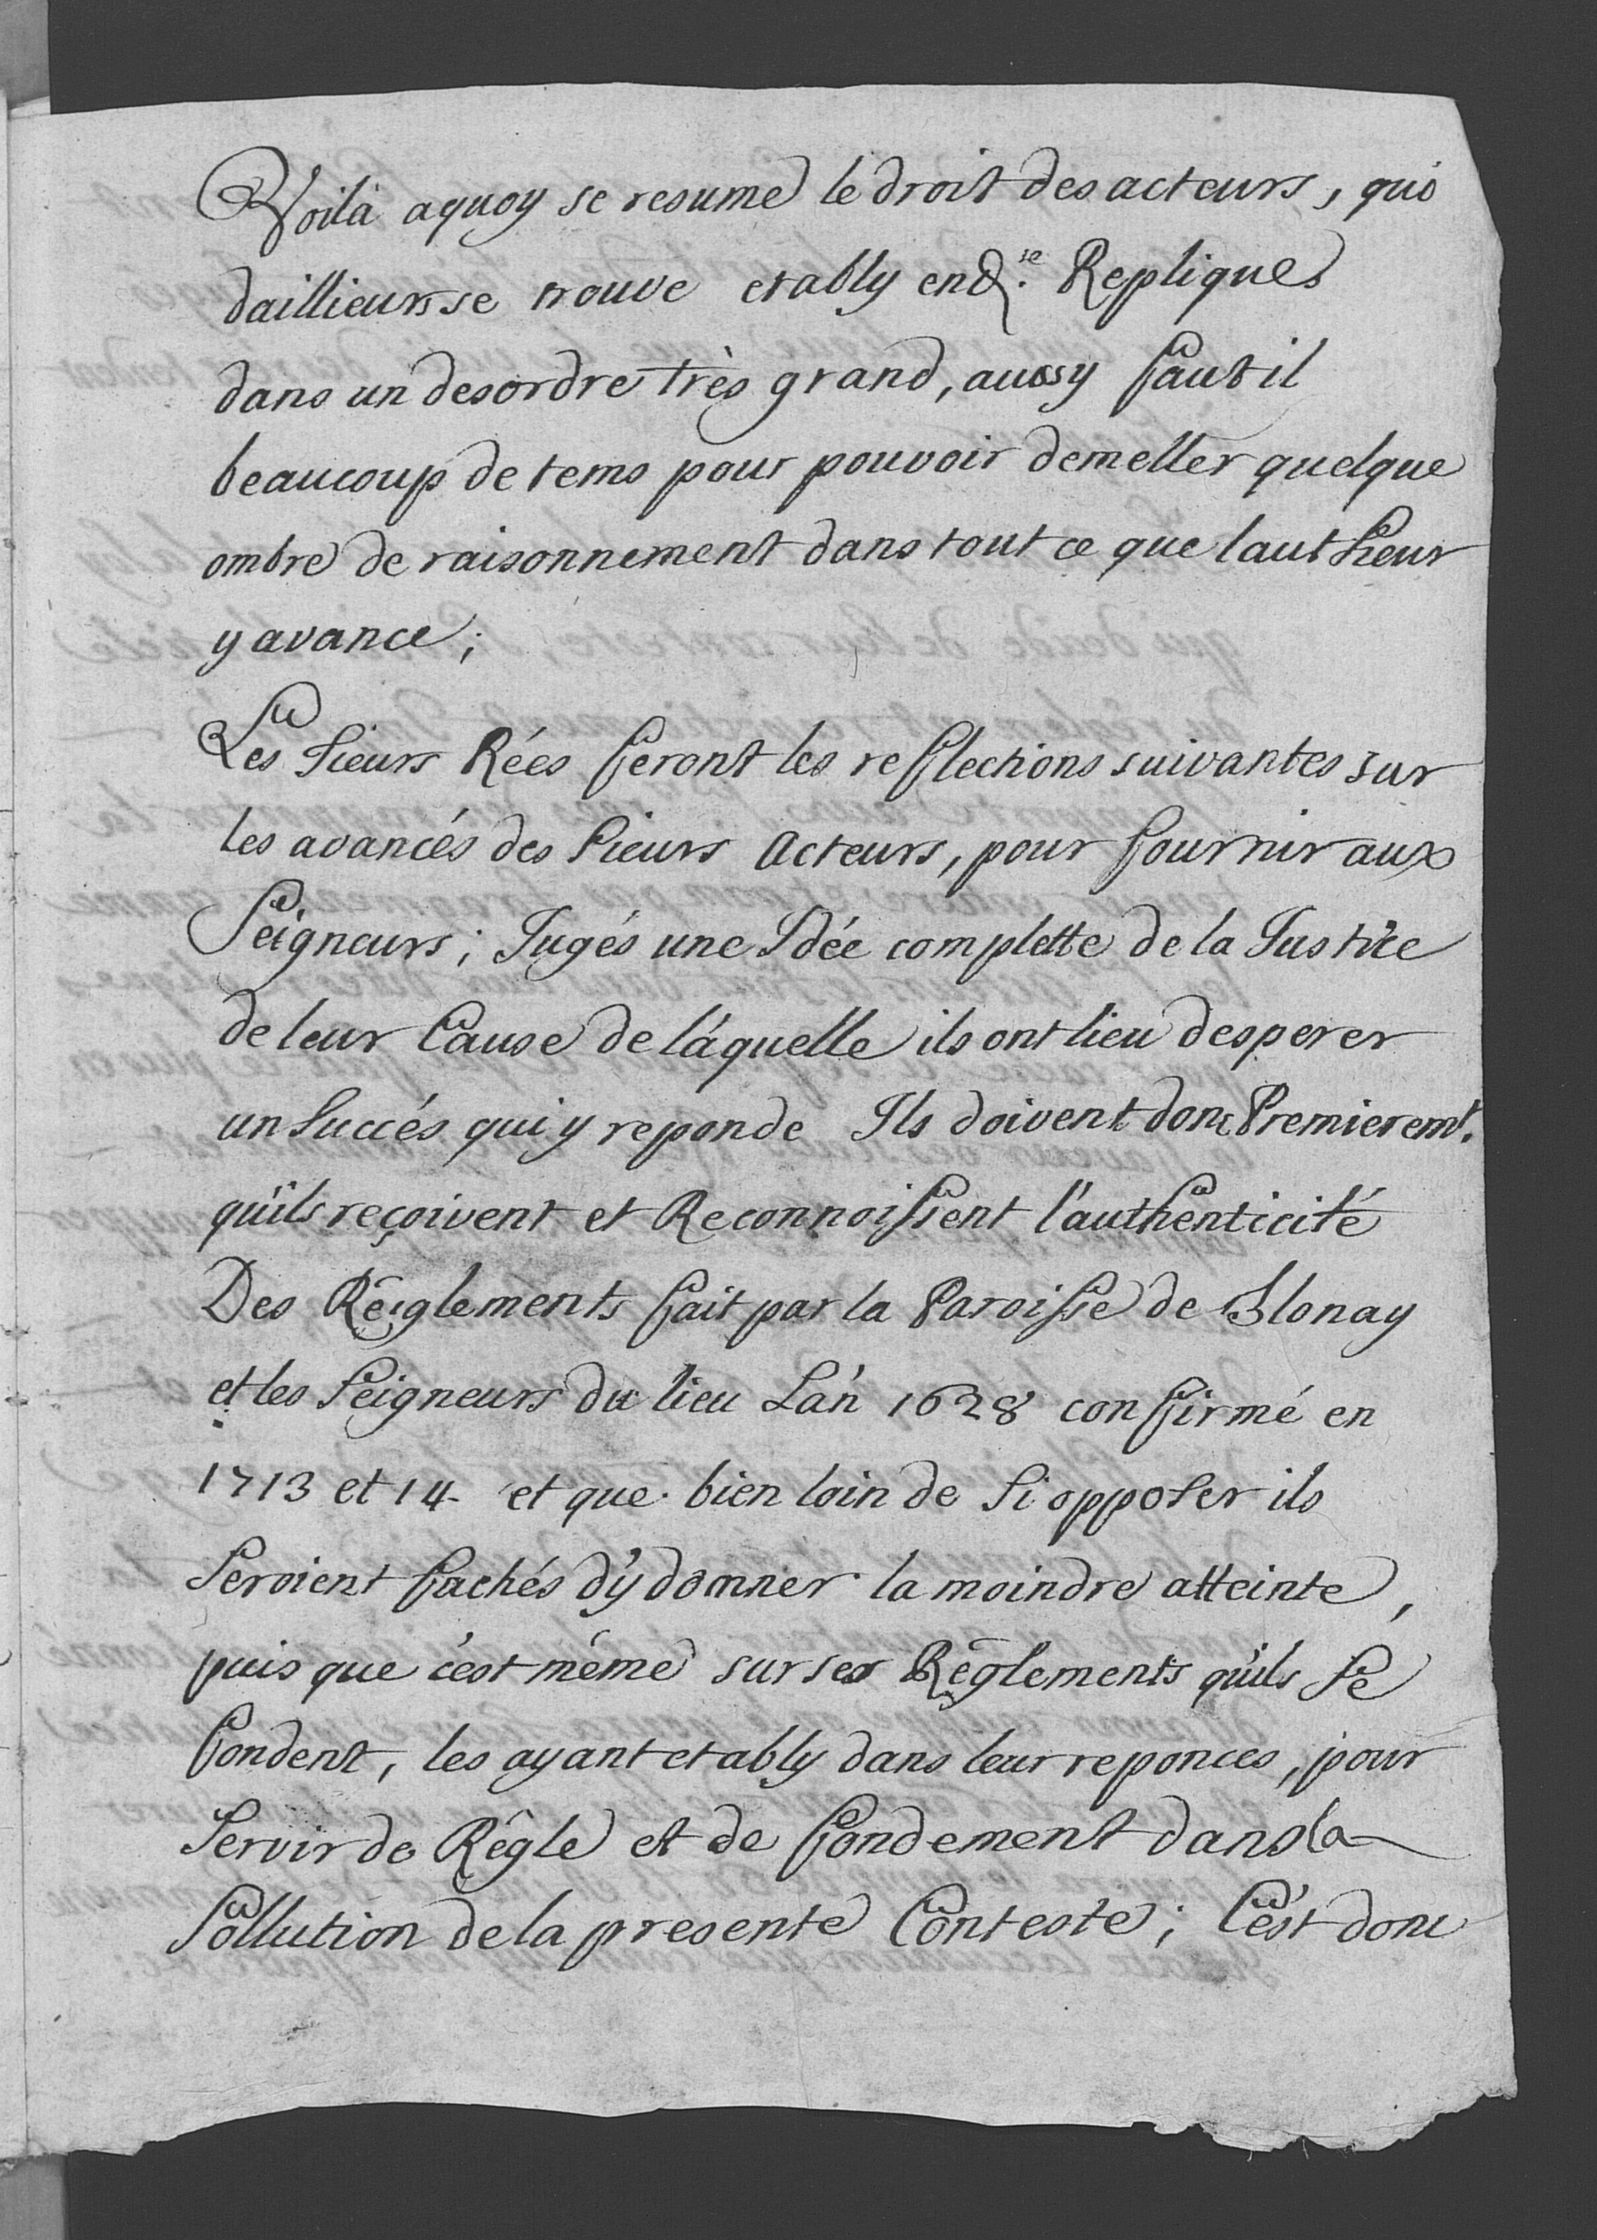 Voilà aquoy se resume le droit des acteurs, qui
daillieurs se trouve etably end.te Repliques
dans un desordre très grand, aussy faut il
beaucoup de tems pour pouvoir demeller quelque
ombre de raisonnement dans tout ce que lautheur
y avance;
Les Sieurs Rées feront les reflections suivantes sur
les avancés des Sieurs Acteurs, pour fournir aux
Seigneurs; Jugés une Idée complette de la Justice
de leur Cause de láquelle ils ont lieu desperer
un Succés qui y reponde Ils doivent donc Premieremt.
qu'ils reçoivent et Reconnoissent l'authenticité
Des Réglements fait par la Paroisse de Blonay
et les Seigneurs du lieu Lán 1628 confirmé en
1713 et 14. et que bien loin de Si opposer ils
Seroient fachés d'y donner la moindre atteinte,
puis que c'est méme sur ses Réglements qu'ils Se
fondent, les ayant etably dans leur reponces, pour
Servir de Régle et de fondement dans la
Sollution de la presente Conteste; C'est donc